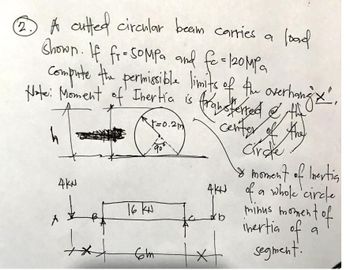 2. A cutted circular beam carries a load
shown. If fT=50MPa and fc=120MPa
Compute the permissible limits of the overhang "x".
Note: Moment of Inertia is transferred @ the
center of the
Circle
r=0.2m
h
90°
* moment of Inertia
of a whole circle
minus moment of
inertia of a
segment.
4KN
4KN
16 KN
A
B
C
D
X
6m
X